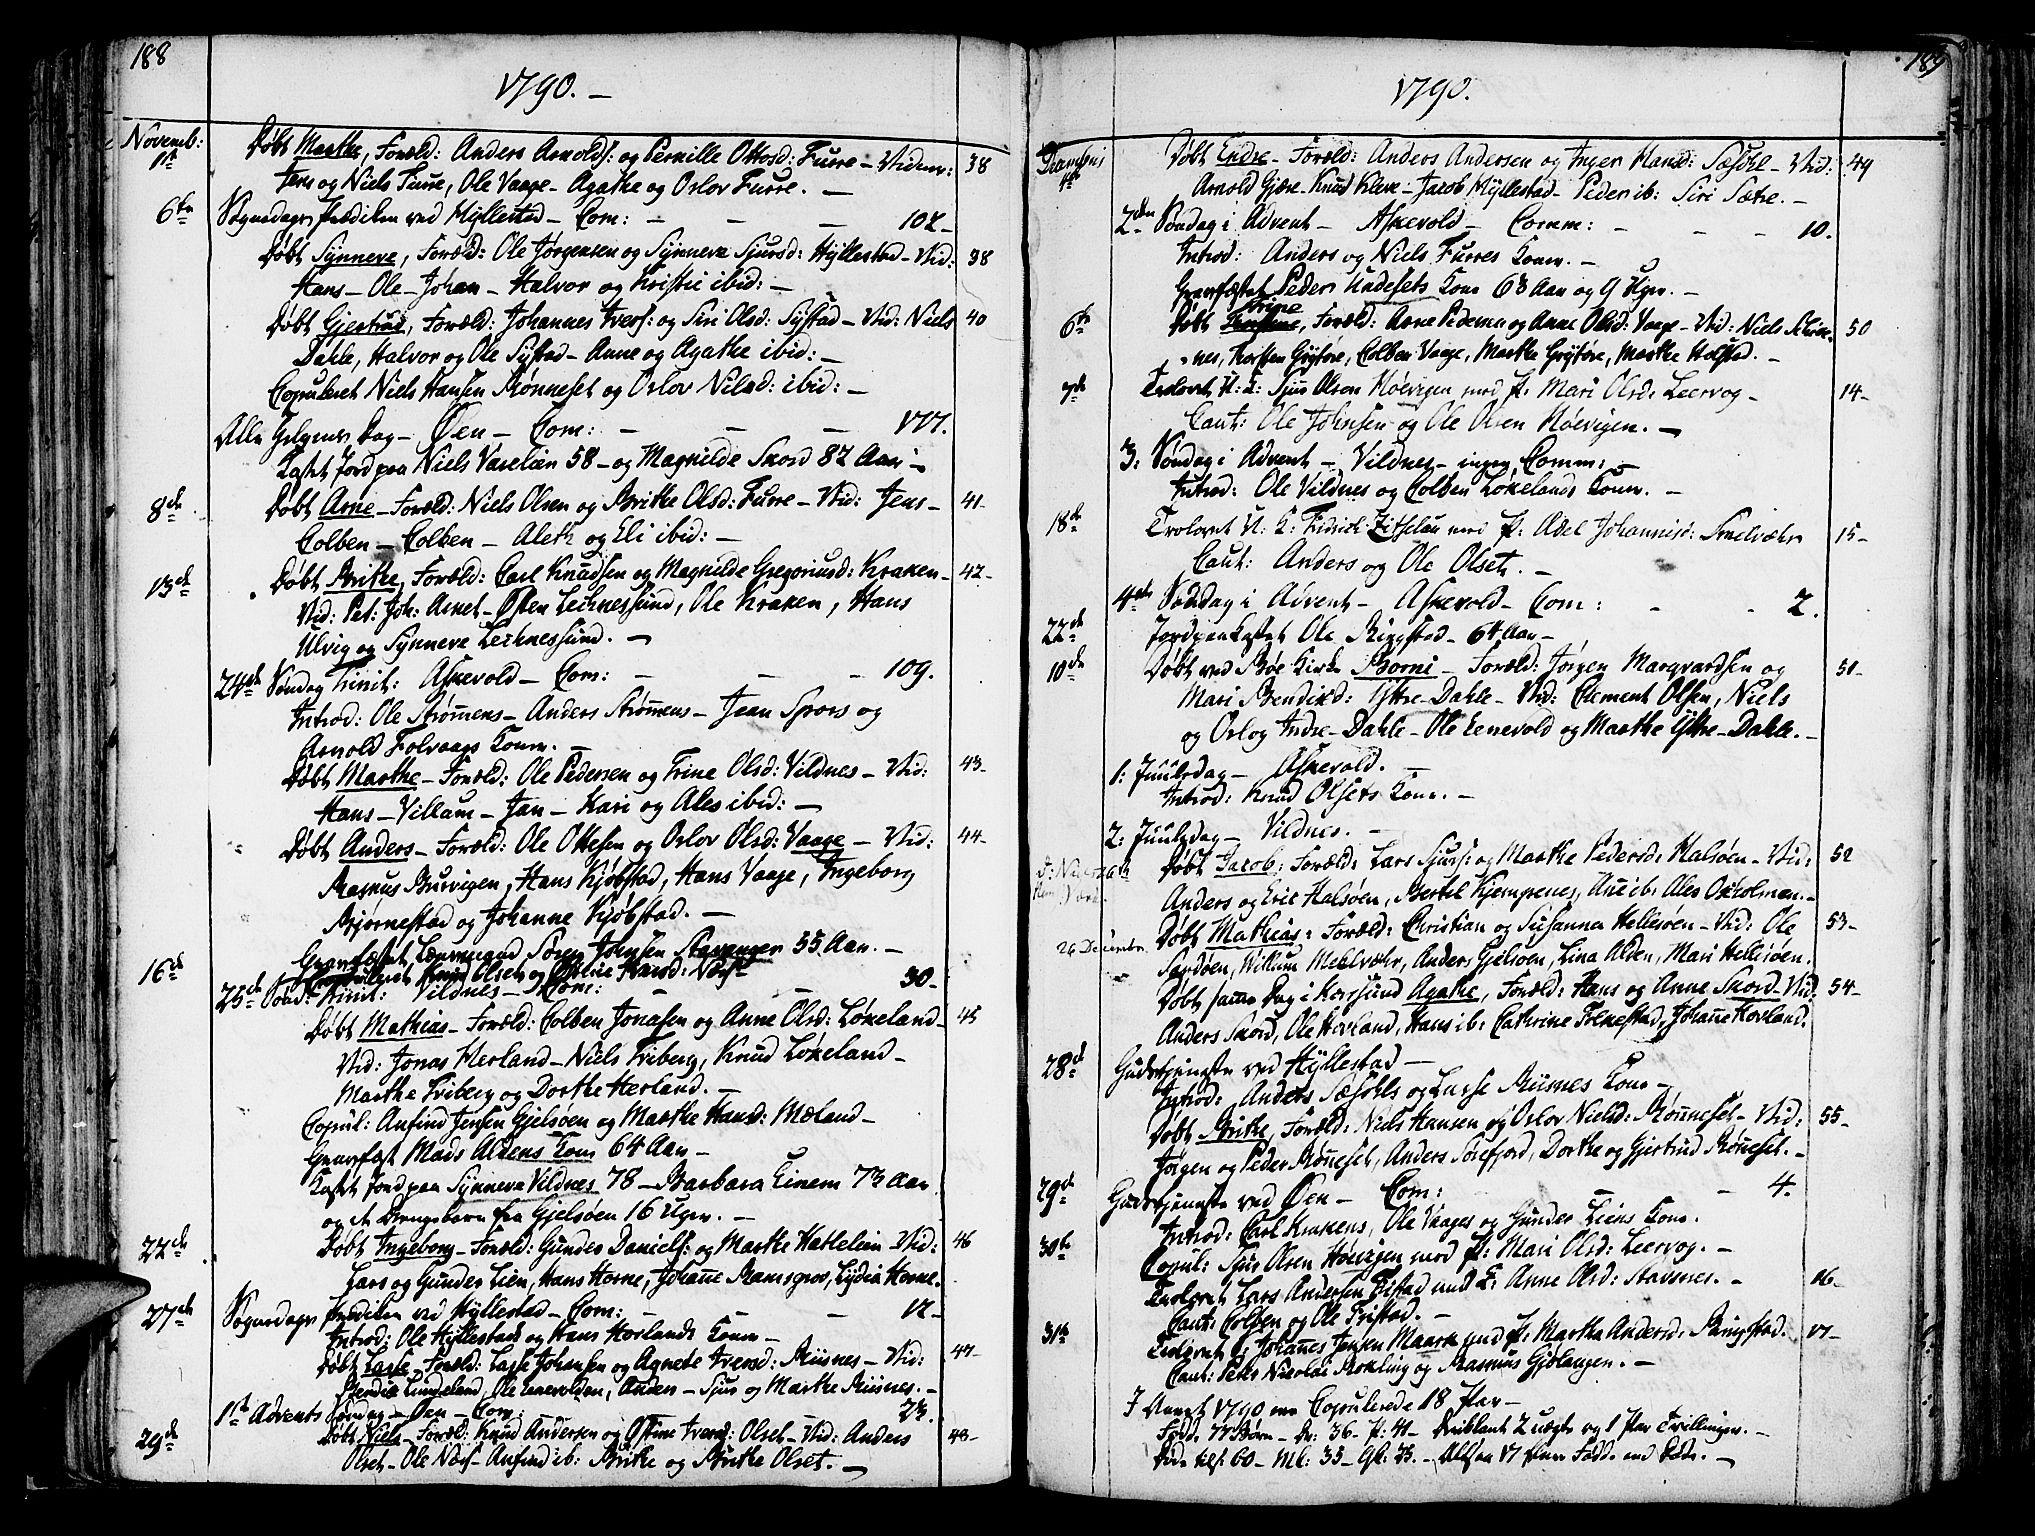 188
1790. –
Novemb:
1te Døbt Marthe, Foræld: Anders Arnoldss: og Pernille Ottosd: Furre – Vidner: 38
Jens og Niels Furre, Ole Vaage – Agathe og Orlov Furre. –
6te Sognedags Prædiken ved Hyllestad – Com: – – – 102 –
Døbt Synneve, Foræld: Ole Jørgensen og Synneve Sjursd: Hyllestad – Vid: 38
Hans – Ole – Johan – Halvor og Kristie ibid: –
Døbt Gjertrud, Foræld: Johannes Iverss: og Siri Olsd: Systad – Vid: Niels 40
Dahle, Halvor og Ole Systad – Anne og Agathe ibid: –
Copuleret Niels Hansen Rønneset og Orlov Nilsd: ibid: –
Alle Helgens Dag – Øen – Com: – – – 177.
Kastet Jord paa Niels 58 – og Magnilde Skord 82 Aar –
8de Døbt Arne – Foræld: Niels Olsen og Brithe Olsd: Furre – Vid: Jens – 41 –
Colben – Colben – Aleth og Eli ibid: –
13de Døbt Brithe, Foræld: Carl Knudsen og Magnilde Gregoriusd: Kraken – 42 –
Vid: Pet: Joh: Arnet – Østen Lechnessund, Ole Kraken, Hans
Ulvig og Synneve Lechnessund. –
24de Søndag Trinit: Askevold – Com: – – – 109.
Introd: Ole Strømens – Anders Strømens – Jean Spors og
Arnold Folvaags Kone. –
Døbt Marthe – Foræld: Ole Pedersen og Trine Olsd: Vildnes – Vid: 43 –
Hans – Villum – Jan – Kari og Ales ibid: –
Døbt Anders – Foræld: Ole Ottesen og Orlov Olsd: Vaage – Vid: 44 –
Rasmus Burvigen, Hans Kjøbstad, Hans Vaage, Ingeborg
Bjørnestad og Johanne Kjøbstad. –
Gravfæstet Lænsmand Søren Johnsen Stavanger 55 Aar. –
16de Copuleret Knud Olset og Østine Iversd: Næss
25de Sønd: Trinit: Vildnes – Com: – – 30 –
Døbt Mathias – Foræld: Colben Jonasen og Anne Olsd: Løkeland – 45
Vid: Jonas Herland – Niels Friberg, Knud Løkeland –
Marthe Friberg og Dorthe Herland. –
Copul: Anfind Jensen Gjelsøen og Marthe Hansd: Mæland –
Gravfæst Mads Aldens Kone 64 Aar –
Kastet Jord paa Synneva Vildnes 78 – Barbara Einem 73 Aar
og et Drengebarn fra Gjelsøen 16 Uger. –
22de Døbt Ingeborg – Foræld: Gunder Danielss: og Marthe Hatlelien – Vid: 46
Lars og Gunder Lien, Hans Horne, Johañe Ramsgrov, Lydia Horne.
27de Sognedags Prædiken ved Hyllestad – Com: – – – 12 –
Introd: Ole Hyllestads og Hans Horlands Koner –
Døbt Lasse – Foræld: Lasse Johansen og Agnete Iversd: Risnes – Vid: 47 –
Lundeland, Ole Lenevolden, Anders – Sjur og Marthe Risnes. –
1te Advents Søndag – Øen – Com: 23.
29de Døbt Niels – Foræld: Knud Andersen og Østine Iversd: Olset – Vid: Anders 48 –
Olset – Ole Næss – Anfind ib: Brithe og Brithe Olset. –
189
1790.
Decembris
4de Døbt Endre – Foræld: Anders Andersen og Inger Hansd: Sæsøle – Vid: 49
Arnold Gjære – Knud Kleve – Jacob Hyllestad – Peder ib: Siri Sætre. –
2den Søndag i Advent – Askevold – Comm: – – – 10.
Introd: Anders og Niels Furres Koner. –
Gravfæstet Peder Hadesets Kone 68 Aar og 9 Uger. –
Trine
6te Døbt, Foræld: Arne Pedersen og Anne Olsd: Vaage – Vid: Niels 50
nes, Torsten Gryføre, Colben Vaage, Marthe Gryføre, Marthe Holstad. –
7de Trolovet U: K: Sjur Olsen Høevigen med P: Mari Olsd: Leervog – 14 –
Caut: Ole Johnsen og Ole Olsen Høevigen. –
3: Søndag i Advent – Vildnes – ingen Comm: –
Introd: Ole Vildnes og Colben Løkelands Koner. –
18de Trolovet U: K: Fridrich med P: Adel Johannisd: 15 –
Caut: Anders og Ole Olset. –
4de Søndag i Advent – Askevold – Com: – – 2.
22de Jordpaakastet Ole Ringstad – 64 Aar –
10de Døbt ved Bøe Kirke Borni – Foræld: Jørgen Marqvardsen og 51 –
Mari Bendixd: Ystre-Dahle – Vid: Clement Olsen, Niels
og Orlog Indre-Dahle – Ole Lenevold og Marthe Ystre-Dahle. –
1: Juuledag – Askevold. –
Introd: Knud Olsets Kone. –
2: Juuledag – Vildnes. –
Døbt Jacob, Foræld: Lars Sjurss: og Marthe Pedersd: Halsøen – Vid: 52
Anders og Eric Halsøen, Bertel Kjempenes, Añe ib: Ales Oxholmen. –
26 Decembr. Døbt Mathias: Foræld: Christian og Susanna Hellesøen – Vid: Ole 53 –
Sandøen, Willum Meelvæhr, Anders Gjelsøen, Lina Alden, Mari Hellesøen.
Døbt samme Dag i Korssund Agathe, Foræld: Hans og Anne Skord – Vid: 54 –
Anders Skord, Ole Horland, Hans ib: Cathrine Folkestad, Johañe Horland.
28de Gudstjeneste ved Hyllestad –
Introd: Anders Sæsøls og Lasse Risnes Koner –
Døbt Brithe, Foræld: Niels Hansen og Orlov Nielsd: Rønneset – Vid: 55 –
Jørgen og Peder Røneset, Anders Sørefjord, Dorthe og Gjertrud Røneset. –
29de Gudstjeneste ved Øen – Com: – – 4.
Introd: Carl Krakens, Ole Vaages og Gunder Liens Koner.
30te Copul: Sjur Olsen Høevigen med P: Mari Olsd: Leervog. –
Trolovet Lars Andersen Fristad med P: Anne Olsd: Stavsnes. – 16 –
Caut: Colben og Ole Fristad. –
31te Trolovet Johannes Jensen Maaren med P: Martha Andersd: Ringstad. 17 –
Caut: Peter Nicolai Rokling og Rasmus Gjølangen. –
I Aaret 1790 ere Copulerede 18 Par –
Fødde 77 Børn – Dr: 36 – P: 41 – Deriblant 2 uægte og 1 Par Tvillinger. –
Døde tils: 60 – Mk: 35 – Qk: 25. – Altsaa 17 flere Fødde end Døde. –